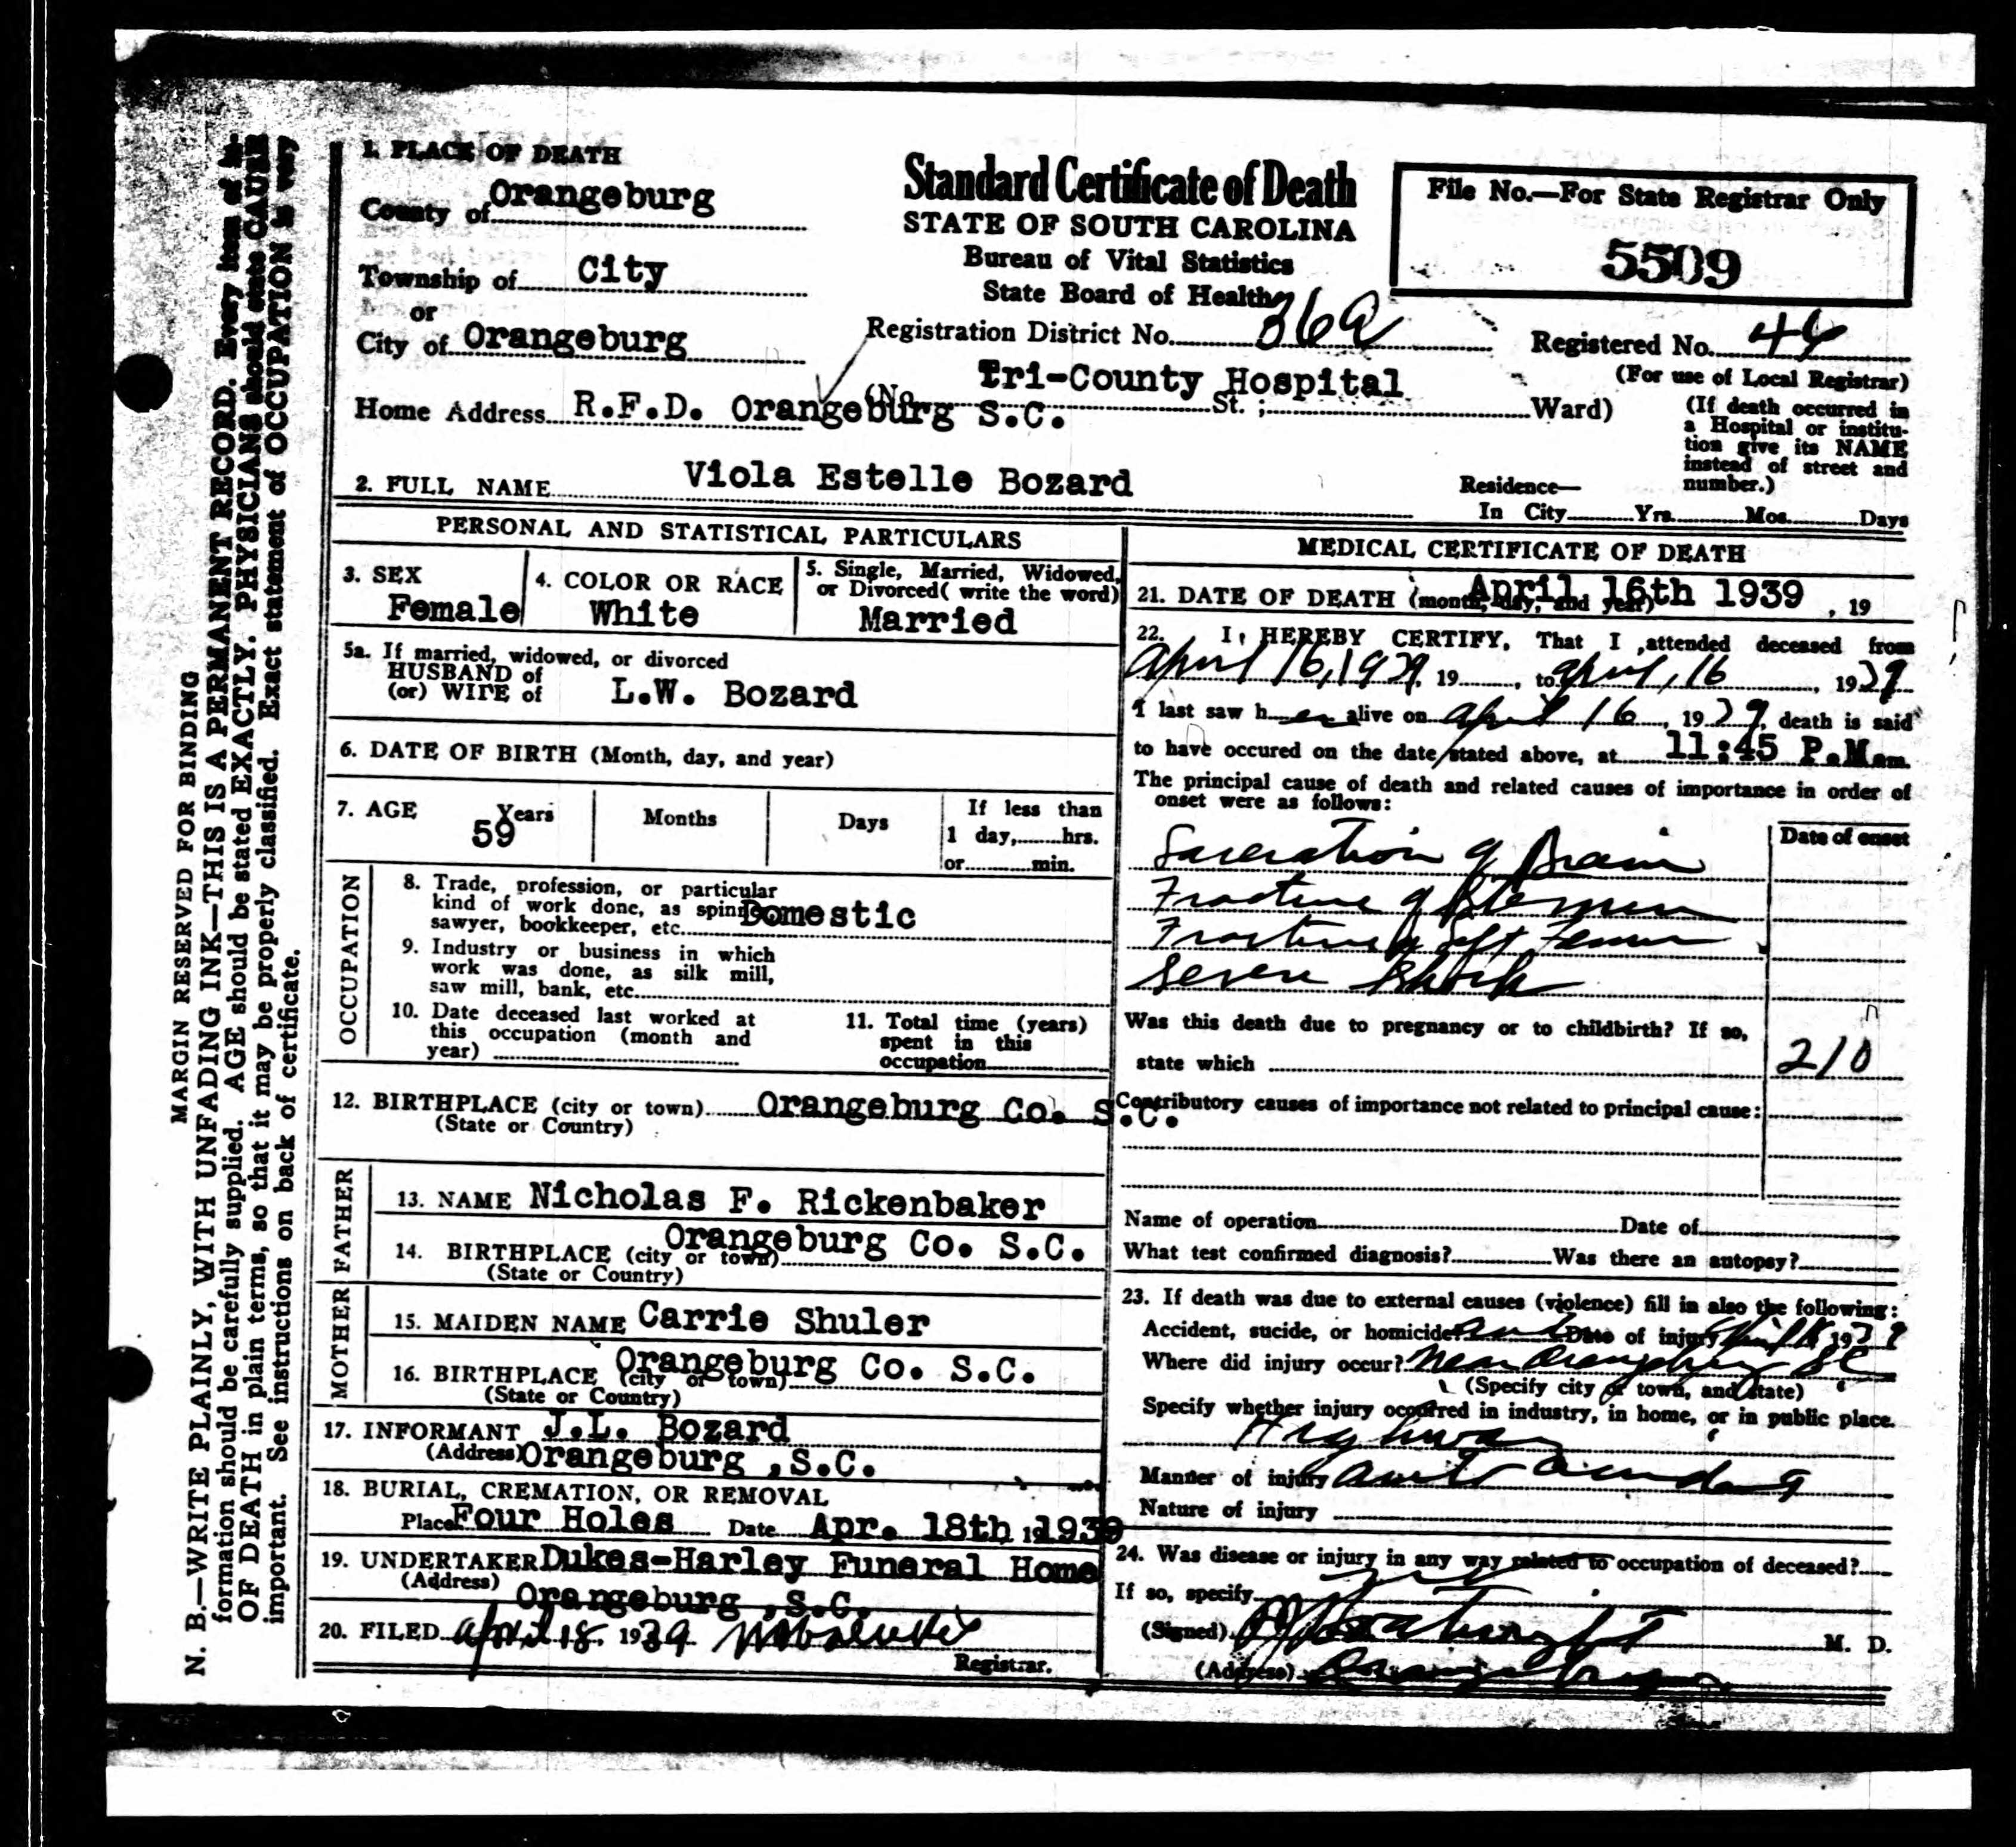 MARGIN RESERVED FOR BINDING
N. B.—WRITE PLAINLY, WITH UNFADING INK—THIS IS A PERMANENT RECORD. Every item of in-
formation should be carefully supplied. AGE should be stated EXACTLY. PHYSICIANS should state CAUSE
OF DEATH in plain terms, so that it may be properly classified. Exact statement of OCCUPATION is very
important. See instructions on back of certificate.
1. PLACE OF DEATH
County of Orangeburg
Township of City
or
City of Orangeburg
Home Address R.F.D. Orangeburg S.C.
Standard Certificate of Death
STATE OF SOUTH CAROLINA
Bureau of Vital Statistics
State Board of Health
Registration District No. 36a
(No. Tri-County Hospital St.; Ward)
File No.—For State Registrar Only
5509
Registered No. 44
(For use of Local Registrar)
(If death occurred in
a Hospital or institu-
tion give its NAME
instead of street and
number.)
2. FULL NAME Viola Estelle Bozard
Residence—
In City Yrs. Mos. Days
PERSONAL AND STATISTICAL PARTICULARS
3. SEX
Female
4. COLOR OR RACE
White
5. Single, Married, Widowed,
or Divorced( write the word)
Married
5a. If married, widowed, or divorced
HUSBAND of
(or) WIFE of L.W. Bozard
6. DATE OF BIRTH (Month, day, and year)
7. AGE Years Months Days
59
If less than
1 day, hrs.
or min.
OCCUPATION
8. Trade, profession, or particular
kind of work done, as spinner,
sawyer, bookkeeper, etc. Domestic
9. Industry or business in which
work was done, as silk mill,
saw mill, bank, etc.
10. Date deceased last worked at
this occupation (month and
year)
11. Total time (years)
spent in this
occupation
12. BIRTHPLACE (city or town) Orangeburg Co. S.C.
(State or Country)
FATHER
13. NAME Nicholas F. Rickenbaker
14. BIRTHPLACE (city or town) Orangeburg Co. S.C.
(State or Country)
MOTHER
15. MAIDEN NAME Carrie Shuler
16. BIRTHPLACE (city or town) Orangeburg Co. S.C.
(State or Country)
17. INFORMANT J.L. Bozard
(Address) Orangeburg ,S.C.
18. BURIAL, CREMATION, OR REMOVAL
Place Four Holes Date Apr. 18th 19 1939
19. UNDERTAKER Dukes-Harley Funeral Home
(Address) Orangeburg ,S.C.
20. FILED April 18, 1939
Registrar.
MEDICAL CERTIFICATE OF DEATH
21. DATE OF DEATH (month, day, and year) April 16th 1939 , 19
22. I, HEREBY CERTIFY, That I attended deceased from
April 16, 1939, 19 , to April, 16 , 1939
I last saw her alive on April 16, 1939, death is said
to have occured on the date stated above, at 11:45 P.M. m.
The principal cause of death and related causes of importance in order of
onset were as follows:
Date of onset
Laceration of Brain
Fracture of Sternum
Fracture of Left Femur
Severe Shock
Was this death due to pregnancy or to childbirth? If so,
state which
210
Contributory causes of importance not related to principal cause:
Name of operation Date of
What test confirmed diagnosis? Was there an autopsy?
23. If death was due to external causes (violence) fill in also the following:
Accident, sucide, or homicide? Date of injury April 16 1939
Where did injury occur? Near Orangeburg SC
(Specify city or town, and state)
Specify whether injury occurred in industry, in home, or in public place.
Highway
Manner of injury Auto accident
Nature of injury
24. Was disease or injury in any way related to occupation of deceased?
If so, specify
(Signed) M. D.
(Address) Orangeburg